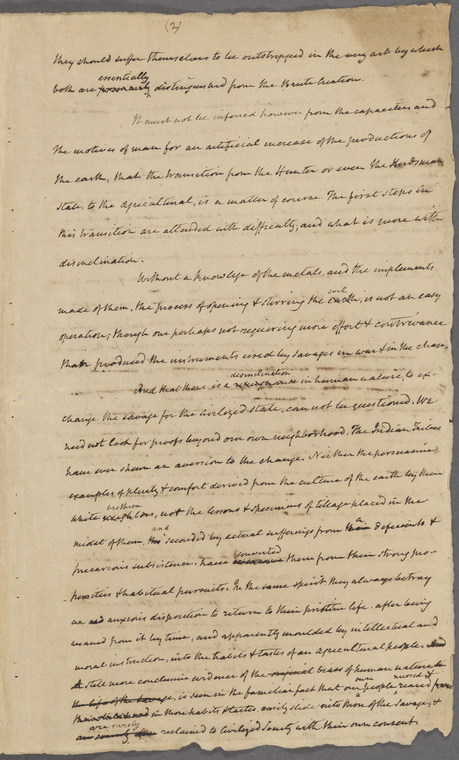 (2)
they should suffer themselves to be outstripped in the very art by which
essentially
both are distinguished from the brute creation.
It must not be inferred however from the capacities and
the motives of man for an artificial increase of the productions of
the earth, that the transition from the Hunter or even the Herdsman
State, to the agricultural, is a matter of course. The first steps in
this transition are attended with difficulty, and what is more with
disinclination.
Without a knowlege of the metals, and the implements
soil
made of them, the process of opening & stirring the earth, is not an easy
operation; though one perhaps not requiring more effort & contrivance
than produced the instruments used by savages in war & in the chase.
disinclination
And that there is a in human nature, to ex-
change the savage for the civilized state, can not be questioned. We
need not look for proofs beyond our own neighborhood. The Indian Tribes
have ever shewn an aversion to the change. Neither the persuasive
examples of plenty & comfort derived from the culture of the earth by their
brethren
white neighbors, nor the lessons & specimens of tillage placed in the
and a
midst of them, tho' seconded by actual sufferings from deficient &
converted
precarious subsistence. have them from their strong pro-
pensities & habitual pursuits. In the same spirit they always betray
an anxious disposition to return to their pristine life. after being
weaned from it by time, and apparently moulded by intellectual and
moral instruction, into the habits & tastes of an agricultural people. And
A still more conclusive evidence of the original bias of human nature
own nursed &
the life of the Savage, is seen in the familiar fact that our people reared from
in those habits & tastes, easily slide into those of the Savage, &
are rarely
reclaimed to civilized Society with their own consent.